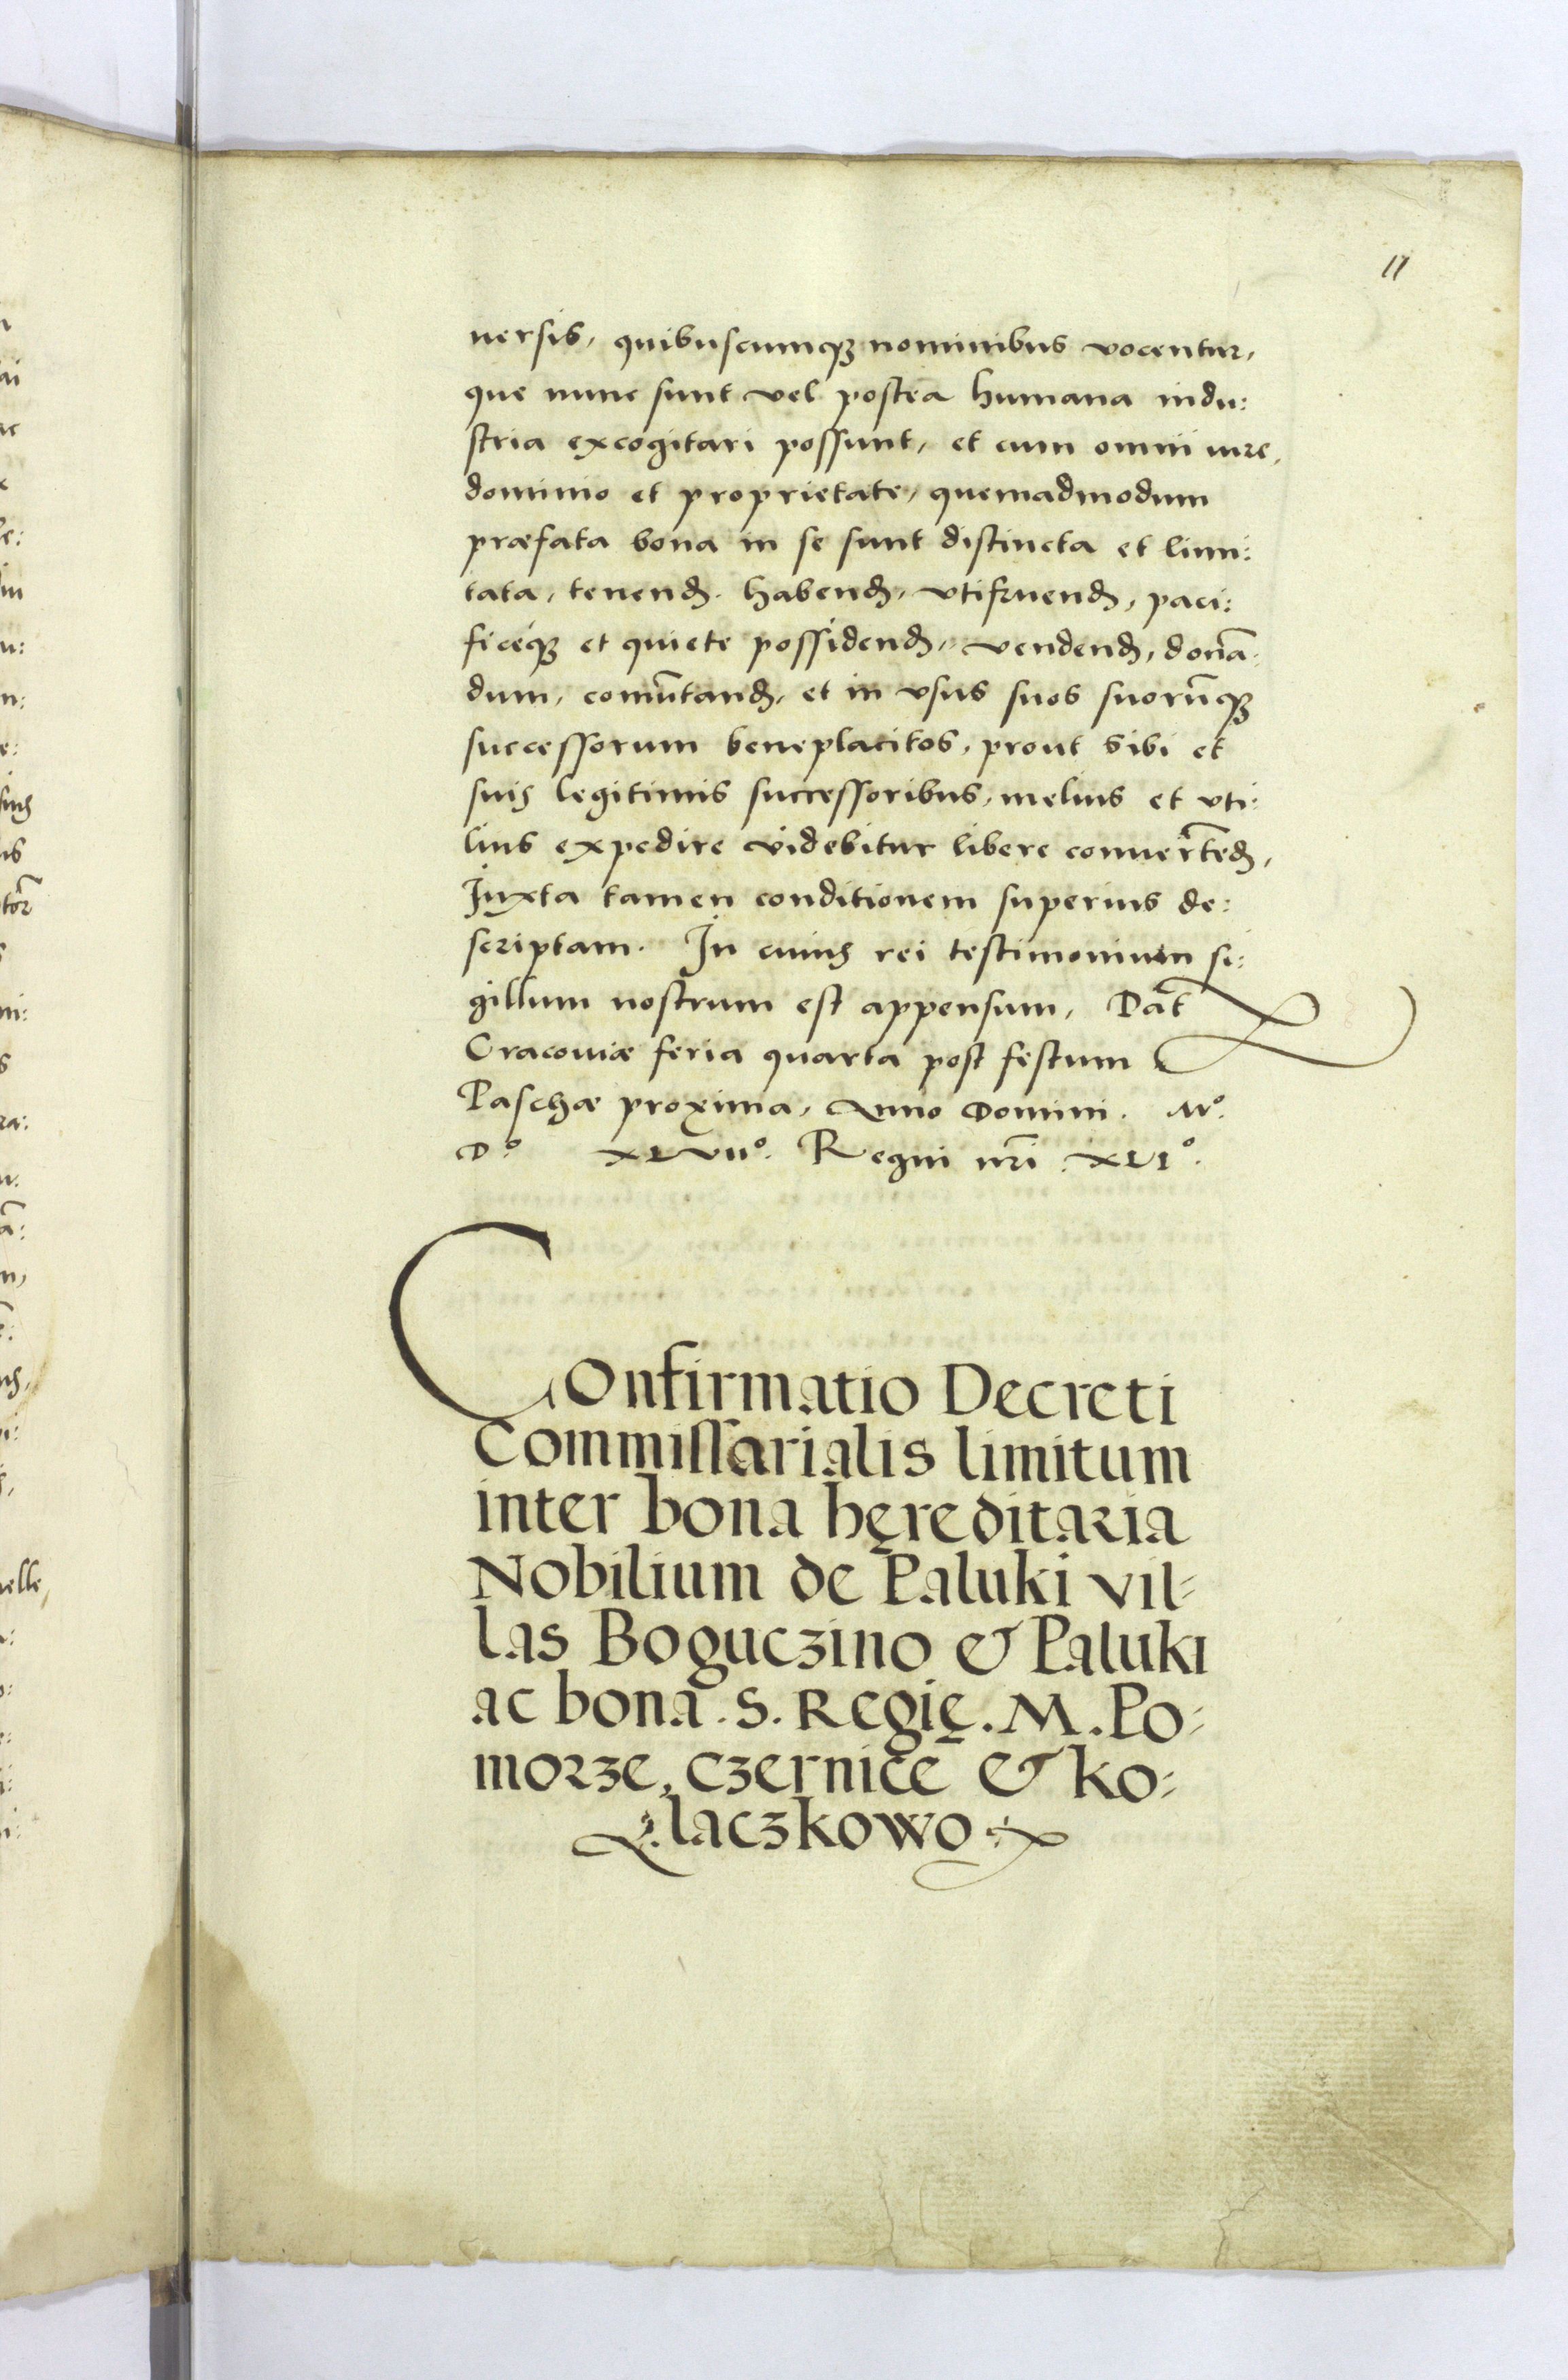 11
uersis, quibuscumqȝ nominibus vocentur,
que nunc sunt vel postea humana indu:
stria excogitari possunt, et cum omni iure,
dominio et proprietate, quemadmodum
præfata bona in se sunt distincta et limi:
tata, tenend. habend, vtifruend, paci:
ficeqȝ et quiete possidend, vendend, donā
dum, comūtand, et in vsus suos suorūqȝ
successorum beneplacitos, prout sibi et
suis legitimis successoribus, melius et vti:
lius expedire videbitur libere conuerteñd,
Juxta tamen conditionem superius de:
scriptam. In cuius rei testimonium si:
gillum nostrum est appensum, Dat̄
Cracouiæ feria quarta post festum
Paschæ proxima, Anno Domini. Mº.
Dº. XLVIIº. Regni nr̄i XLIº.
COnfirmatio Decreti
Commissarialis limitum
inter bona hęreditaria
Nobilium de Paluki vil=
las Boguczino & Paluki
ac bona. S. Regię. M. Po=
morze, Czernice & Ko=
laczkowo